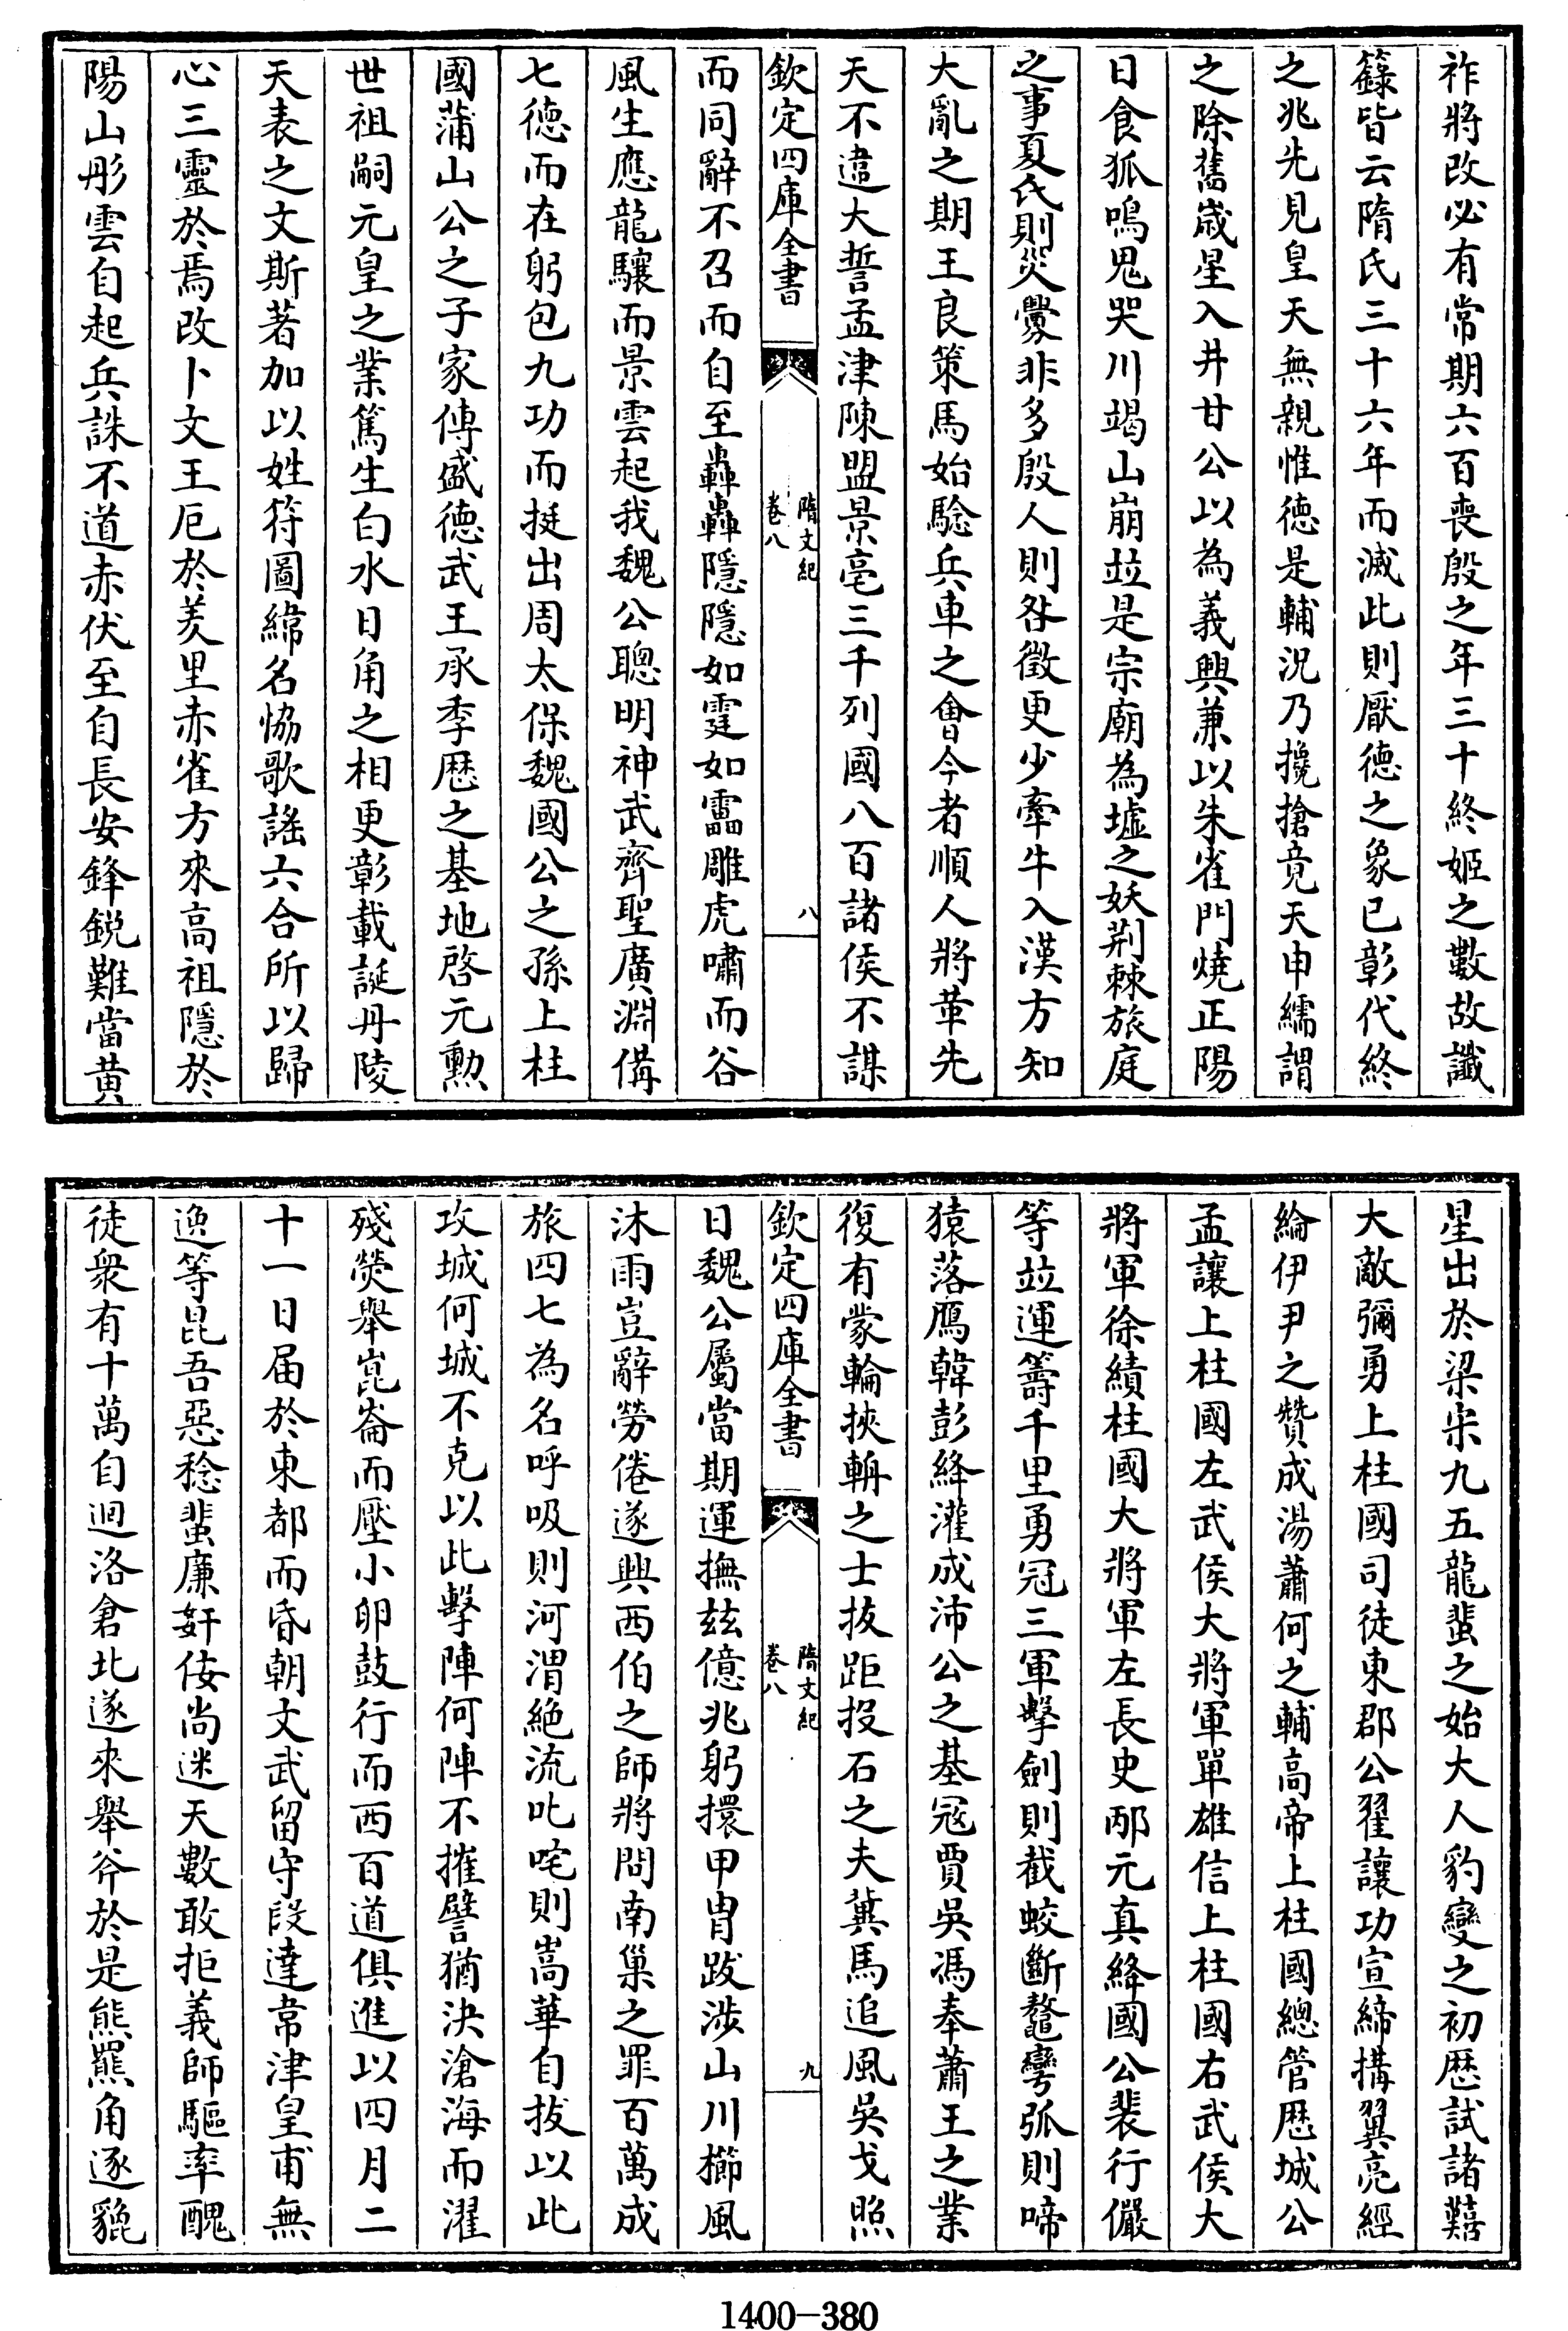 祚將改必有常期六百喪殷之年三十終姬之數故䜟
籙皆云隋氏三十六年而滅此則厭德之象已彰代終
之兆先見皇天無親惟德是輔況乃攙搶竟天申繻謂
之除舊歳星入井甘公以為義興兼以朱雀門燒正陽
日食狐鳴鬼哭川竭山崩竝是宗廟為墟之妖荆棘旅庭
之事夏氏則災釁非多殷人則咎徵更少牽牛入漢方知
大亂之期王良策馬始驗兵車之會今者順人將革先
天不違大誓孟津陳盟景亳三千列國八百諸侯不謀
欽定四庫全書
隋文紀
卷八
八
而同辭不召而自至轟轟隱隱如霆如靁雕虎嘯而谷
風生應龍驤而景雲起我魏公聰明神武齊聖廣淵備
七德而在躬包九功而挺出周太保魏國公之孫上柱
國蒲山公之子家傳盛德武王承季歴之基地啓元勲
世祖嗣元皇之業篤生白水日角之相更彰載誕丹陵
天表之文斯著加以姓符圖緯名協歌謡六合所以歸
心三靈於焉改卜文王厄於羑里赤雀方來高祖隱於
陽山彤雲自起兵誅不道赤伏至自長安鋒鋭難當黄
星出於梁宋九五龍蜚之始大人豹變之初歴試諸難
大敵彌勇上柱國司徒東郡公翟讓功宣締搆翼亮經
綸伊尹之贊成湯蕭何之輔高帝上柱國總管歴城公
孟讓上柱國左武侯大將軍單雄信上柱國右武侯大
將軍徐績柱國大將軍左長史邴元真絳國公裴行儼
等竝運籌千里勇冠三軍擊劍則截蛟斷鼇彎弧則啼
猿落鴈韓彭絳灌成沛公之基冦賈吳馮奉蕭王之業
復有蒙輪挾輈之士拔距投石之夫冀馬追風吳戈照
欽定四庫全書
隋文紀
卷八
九
日魏公屬當期運撫兹億兆躬擐甲胄跋涉山川櫛風
沐雨豈辭勞倦遂興西伯之師將問南巢之罪百萬成
旅四七為名呼吸則河渭絶流叱咤則嵩華自拔以此
攻城何城不克以此擊陣何陣不摧譬猶決滄海而濯
殘熒舉崑崙而壓小卵鼓行而西百道俱進以四月二
十一日届於東都而昏朝文武留守段達韋津皇甫無
逸等昆吾惡稔蜚廉姧佞尚迷天數敢拒義師驅率醜
徒衆有十萬自迴洛倉北遂來舉斧於是熊羆角逐貔
1400-380